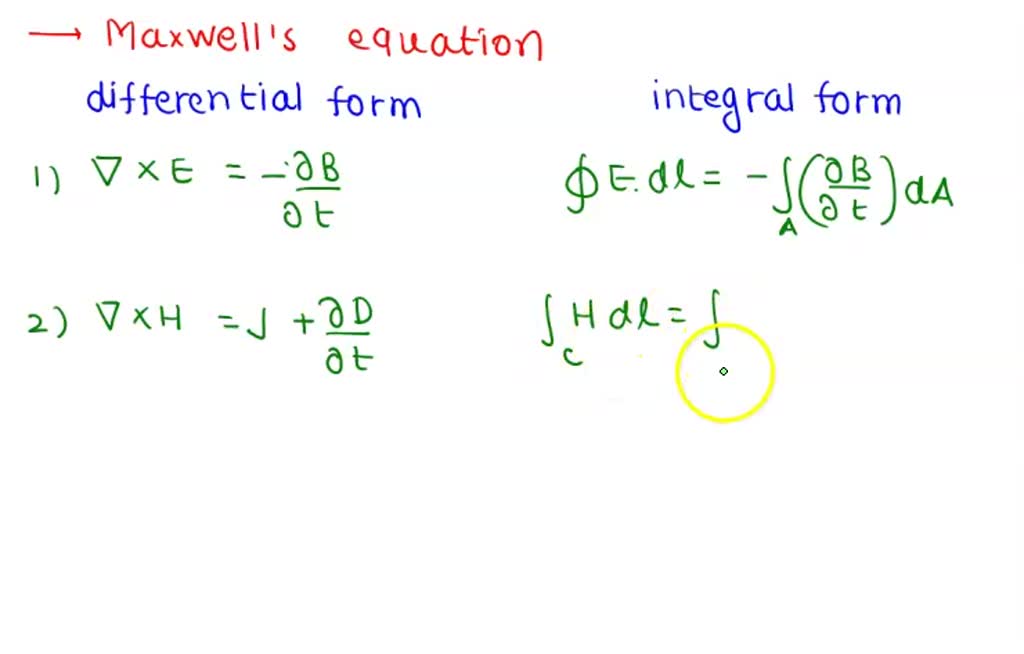 → Maxwell's equation
differential form integral form
1) ∇ × E = -∂B/∂t ∮ E. dl = - ∫_A (∂B/∂t) dA
2) ∇ × H = J + ∂D/∂t ∫_C H dl = ∫